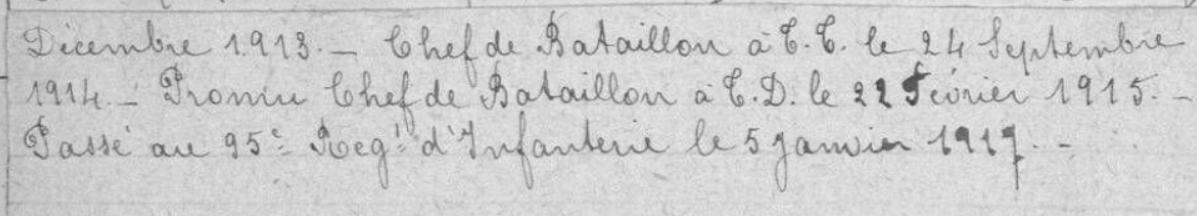 Décembre 1913. — Chef de Bataillon à T. T. le 24 Septembre
1914. — Promu Chef de Bataillon à T. D. le 22 Février 1915. —
Passé au 95e Regt d'Infanterie le 5 Janvier 1917. —